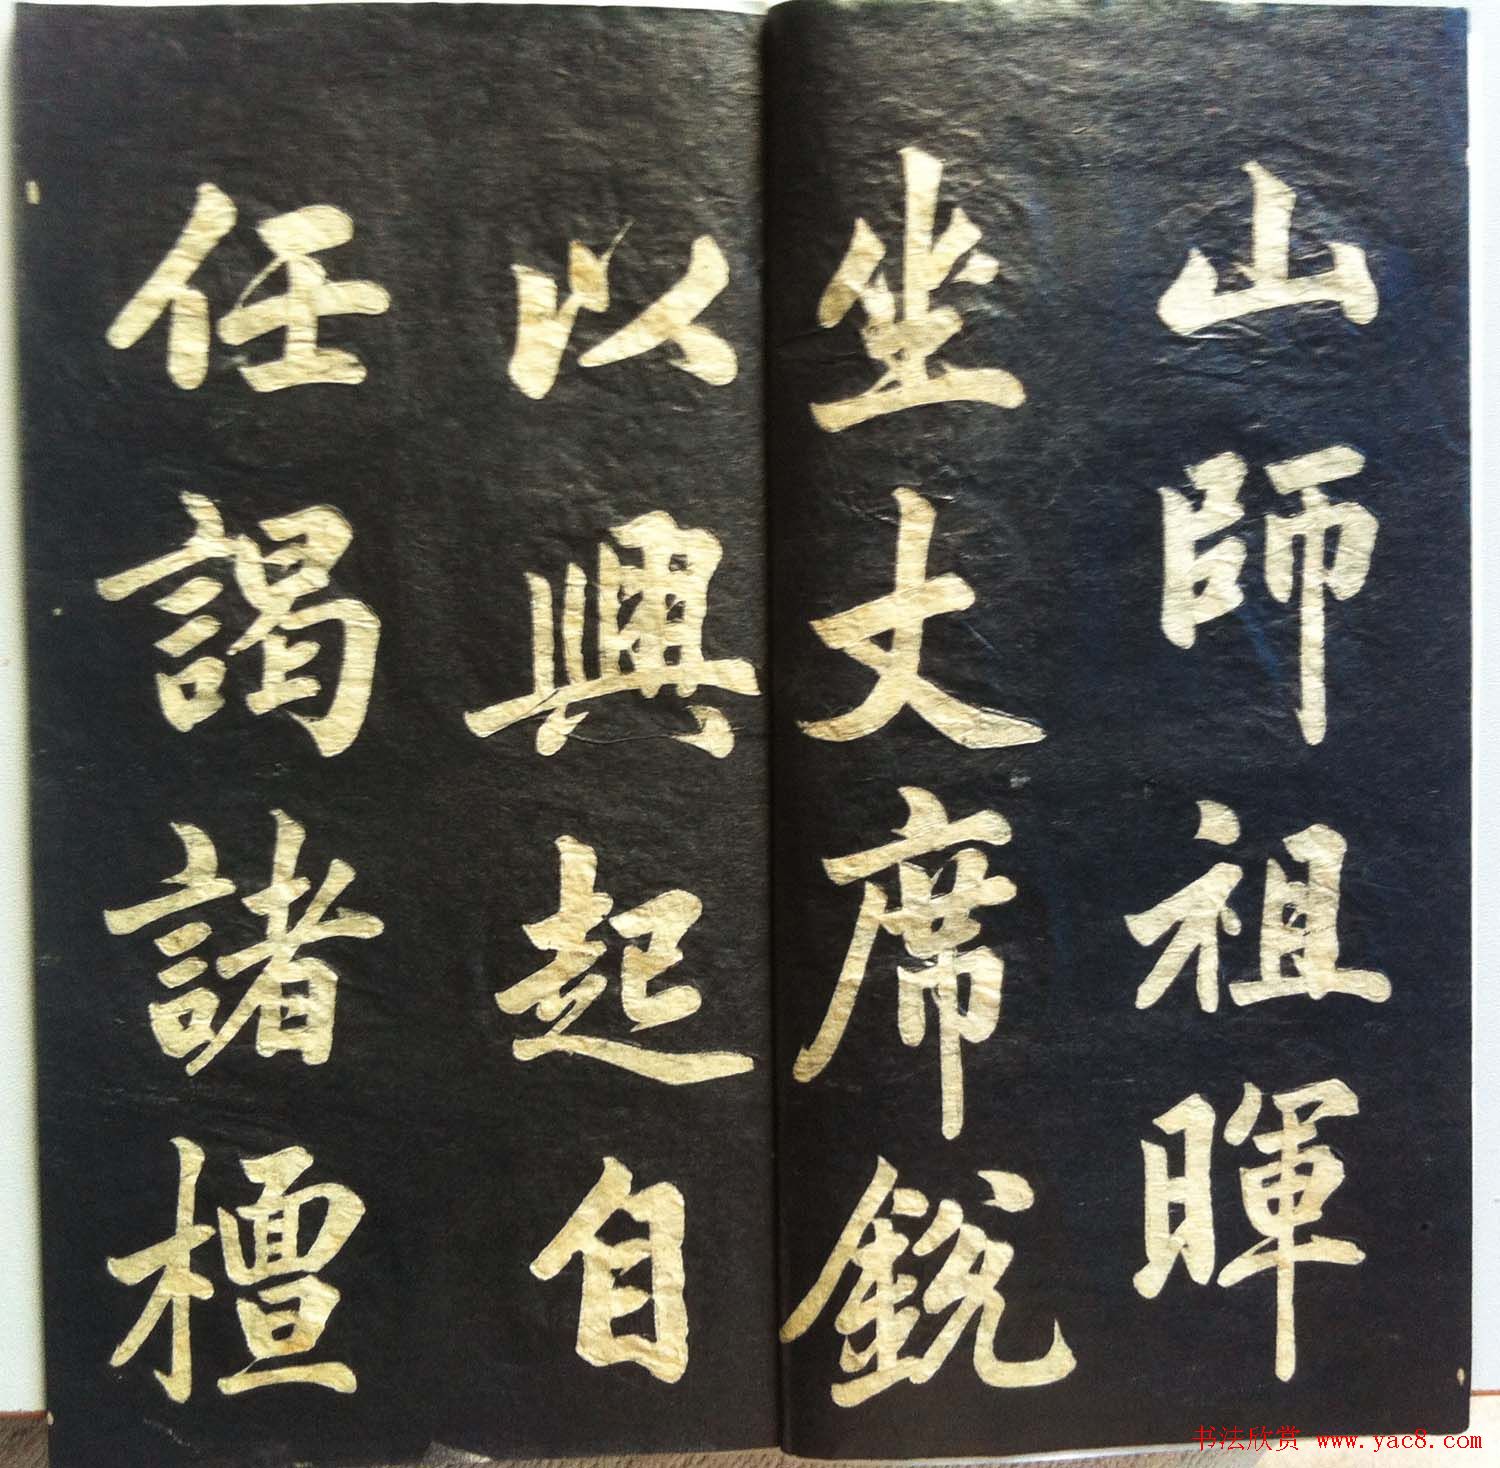 山師祖暉
坐丈席銳
以興起自
任謁諸檀
书法欣赏 www.yac8.com